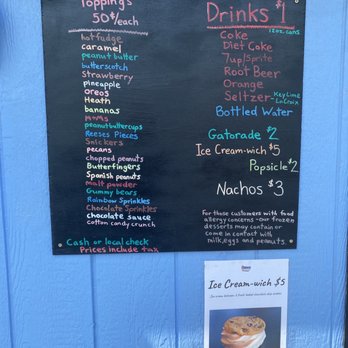 Toppings
50¢/each
hot fudge
caramel
peanut butter
butterscotch
strawberry
pineapple
oreos
Heath
bananas
m&ms
peanut butter cups
Reeses Pieces
Snickers
pecans
chopped peanuts
Butterfingers
Spanish peanuts
malt powder
Gummy bears
Rainbow Sprinkles
Chocolate Sprinkles
chocolate sauce
cotton candy crunch
Cash or local check
Prices include tax
Drinks $1
12oz. cans
Coke
Diet Coke
7up/Sprite
Root Beer
Orange
Seltzer - Key Lime
LaCroix
Bottled Water
Gatorade $2
Ice Cream-wich $5
Popsicle $2
Nachos $3
For those customers with food
allergy concerns - our frozen
desserts may contain or
come in contact with
milk, eggs and peanuts.
Ice Cream-wich $5